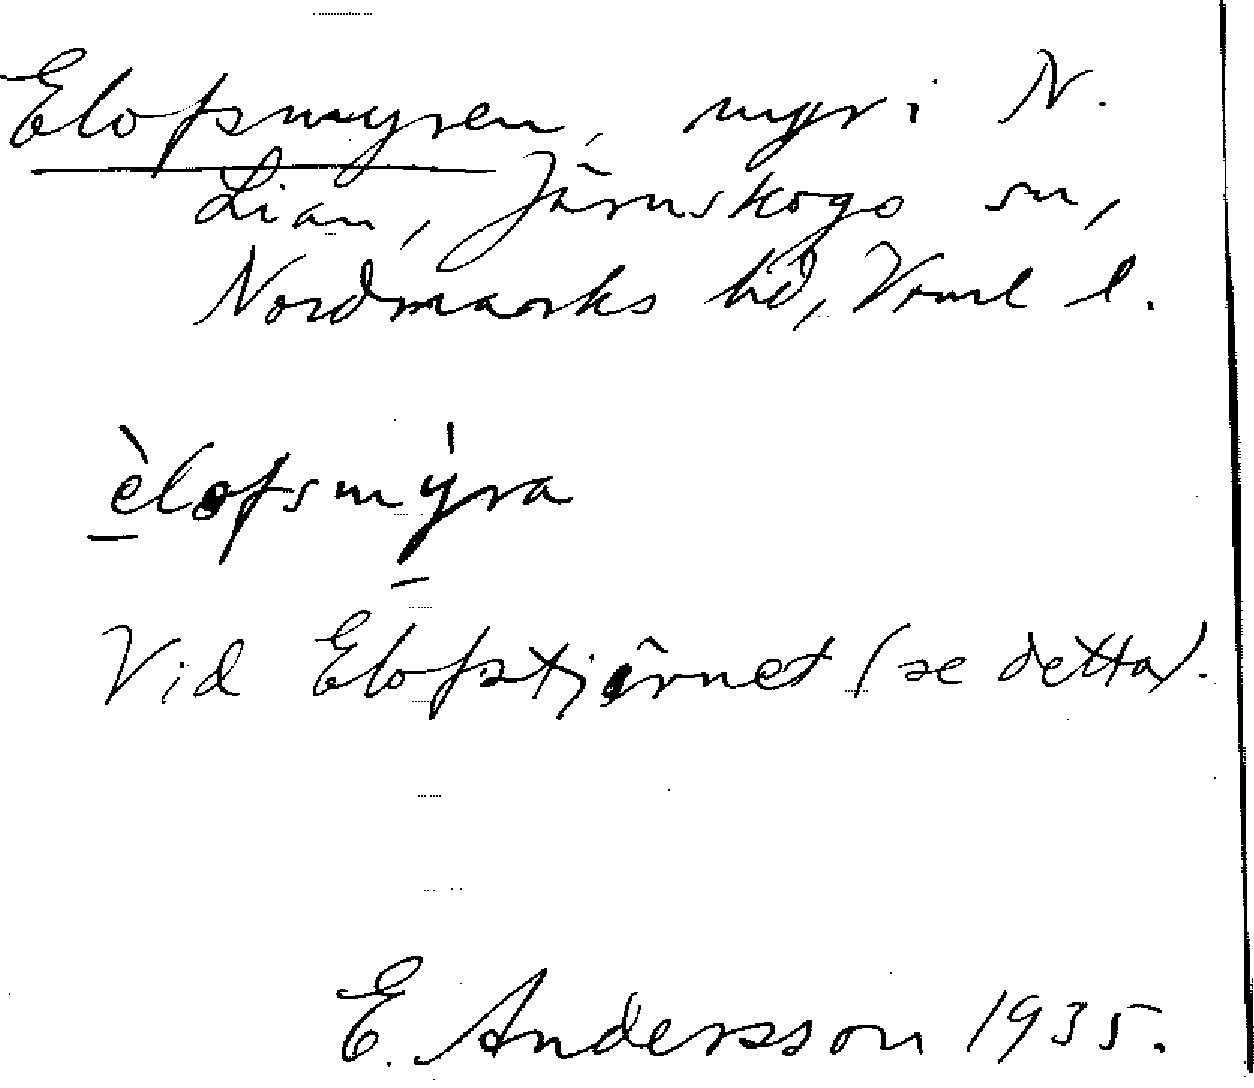 Elofsmyren, myr i N.
Lian, Järnskogs sn,
Nordmarks hd, Vrml l.
èlofsmýra
Vid Elofstjärnet (se detta).
E. Andersson 1935.